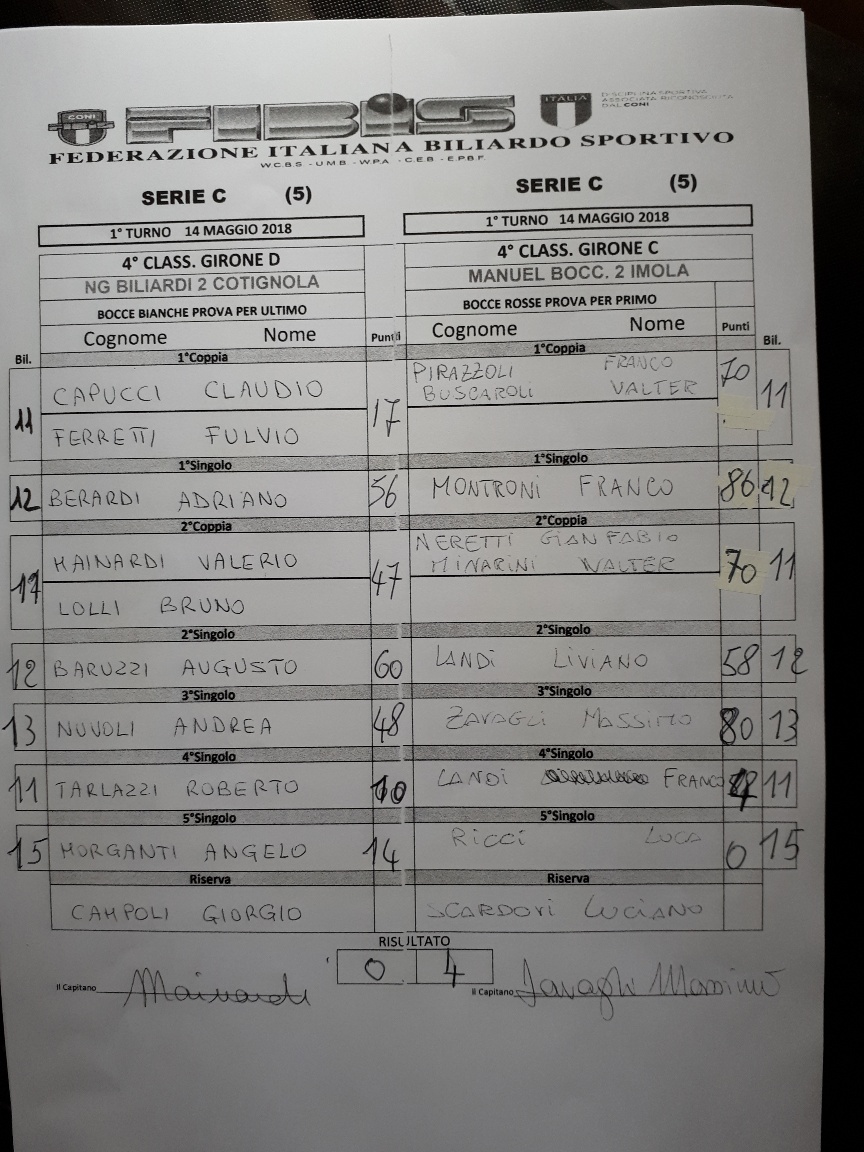 CONI
FIBIS
ITALIA
DISCIPLINA SPORTIVA
ASSOCIATA RICONOSCIUTA
DAL CONI
FEDERAZIONE ITALIANA BILIARDO SPORTIVO
W.C.B.S - U.M.B - W.P.A - C.E.B - E.P.B.F.
SERIE C (5) SERIE C (5)
1° TURNO 14 MAGGIO 2018 1° TURNO 14 MAGGIO 2018
4° CLASS. GIRONE D 4° CLASS. GIRONE C
NG BILIARDI 2 COTIGNOLA MANUEL BOCC. 2 IMOLA
BOCCE BIANCHE PROVA PER ULTIMO BOCCE ROSSE PROVA PER PRIMO
Bil. Cognome Nome Punti Cognome Nome Punti Bil.
1°Coppia 1°Coppia
11 CAPUCCI CLAUDIO 17 PIRAZZOLI FRANCO 70 11
FERRETTI FULVIO BUSCAROLI VALTER
1°Singolo 1°Singolo
12 BERARDI ADRIANO 56 MONTRONI FRANCO 86 12
2°Coppia 2°Coppia
MAINARDI VALERIO 47 NERETTI GIANFABIO 70 11
LOLLI BRUNO MINARINI WALTER
2°Singolo 2°Singolo
12 BARUZZI AUGUSTO 60 LANDI LIVIANO 58 12
3°Singolo 3°Singolo
13 NUVOLI ANDREA 48 ZAVAGLI MASSIMO 80 13
4°Singolo 4°Singolo
11 TARLAZZI ROBERTO LANDI FRANCO 11
5°Singolo 5°Singolo
15 MORGANTI ANGELO 14 RICCI LUCA 0 15
Riserva Riserva
CAMPOLI GIORGIO SCARDOVI LUCIANO
RISULTATO
0 4
Il Capitano Mainardi Il Capitano Zavagli Massimo